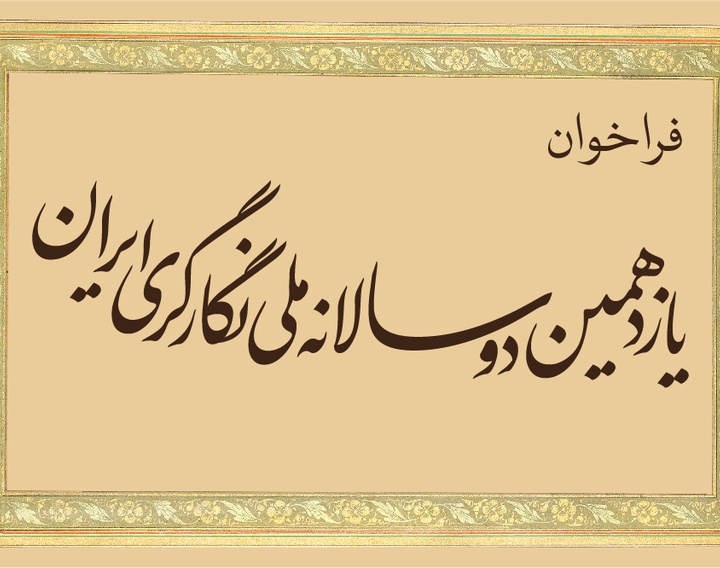 فراخوان
یازدهمین دوسالانه ملی نگارگری ایران